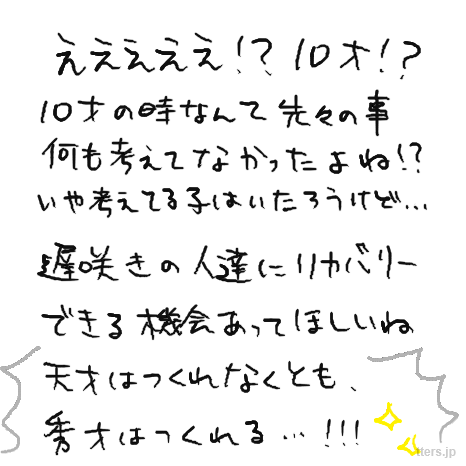 えええええ!? 10才!?
10才の時なんて先々の事
何も考えてなかったよね!?
いや考えてる子はいたろうけど…
遅咲きの人達にリカバリー
できる機会あってほしいね
天才はつくれなくとも、
秀才はつくれる…!!!
tters.jp